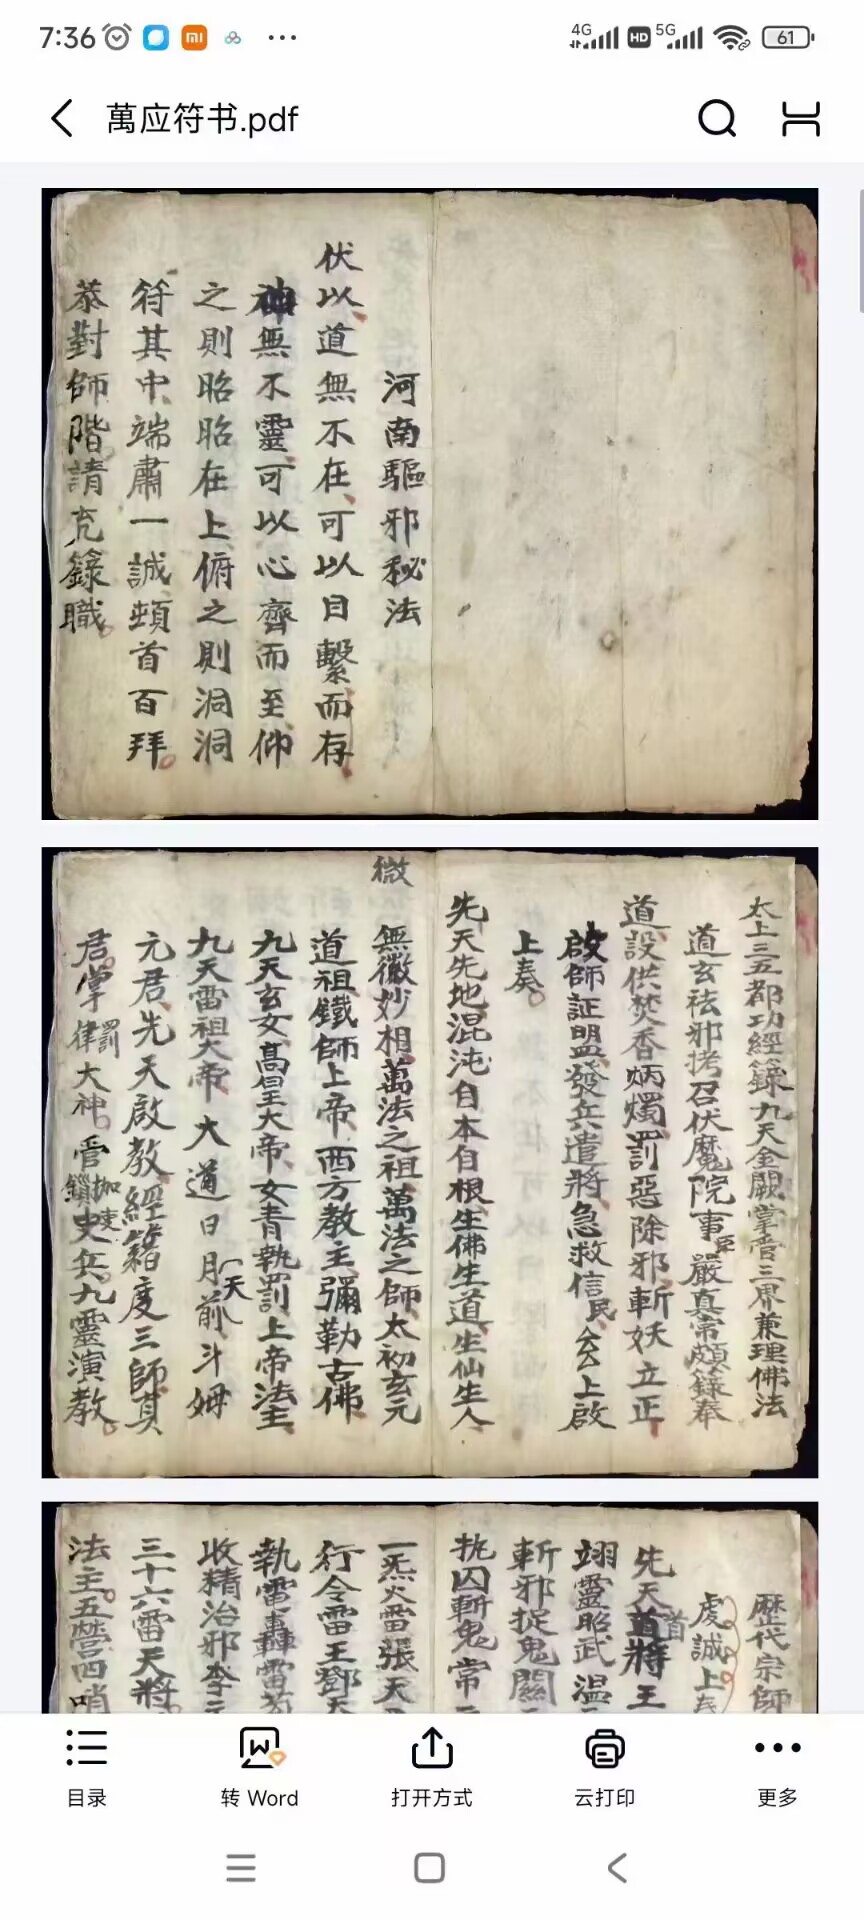 7:36
4G
HD
5G
61
萬应符书.pdf
河南驅邪秘法
伏以道無不在可以目繫而存
神無不靈可以心齊而至仰
之則昭昭在上俯之則洞洞
符其中端肅一誠頓首百拜
恭對師階請充籙職
太上三五都功經籙九天金闕掌管三界兼理佛法
道玄祛邪拷召伏魔院事臣嚴真常頗籙奉
道設供焚香炳燭罰惡除邪斬妖立正
啟師証盟發兵遣將急救信民厶厶上啟
上奏
先天先地混沌自本自根生佛生道生仙生人
微
無徽妙相萬法之祖萬法之師太初玄元
道祖鐵師上帝西方教主彌勒古佛
九天玄女高皇大帝女青執罰上帝法主
九天雷祖大帝大道日月前斗姆
天
元君先天啟教經籍度三師真
君掌罰律大神管枷鎖史兵九靈演教
歷代宗師
虔誠上
先天首將王
翊靈昭武温
斬邪捉鬼關
扤囚斬鬼常
一炁火雷張天
行令雷王鄧
執雷轟雷
收精治邪李
三十六雷天將
法主五營四哨
目录
转 Word
打开方式
云打印
更多